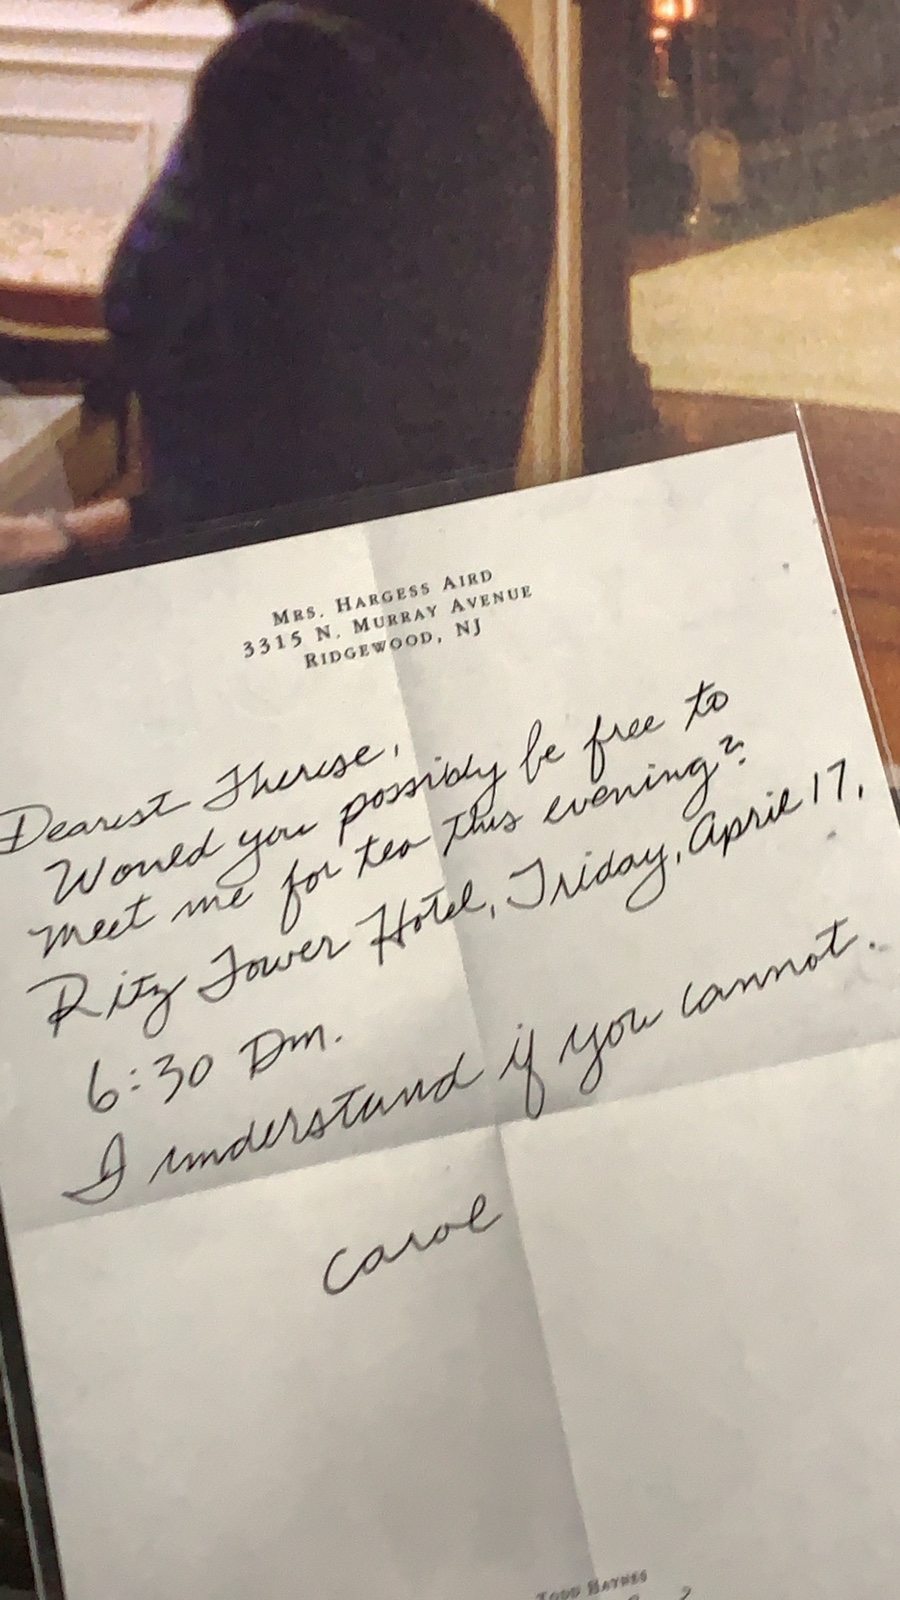 Mrs. Hargess Aird
3315 N. Murray Avenue
Ridgewood, NJ
Dearest Therese,
Would you possibly be free to
meet me for tea this evening?
Ritz Tower Hotel, Friday, April 17,
6:30 Pm.
I understand if you cannot.
Carol
Todd Haynes